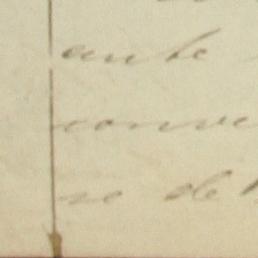 ante
conve
se de